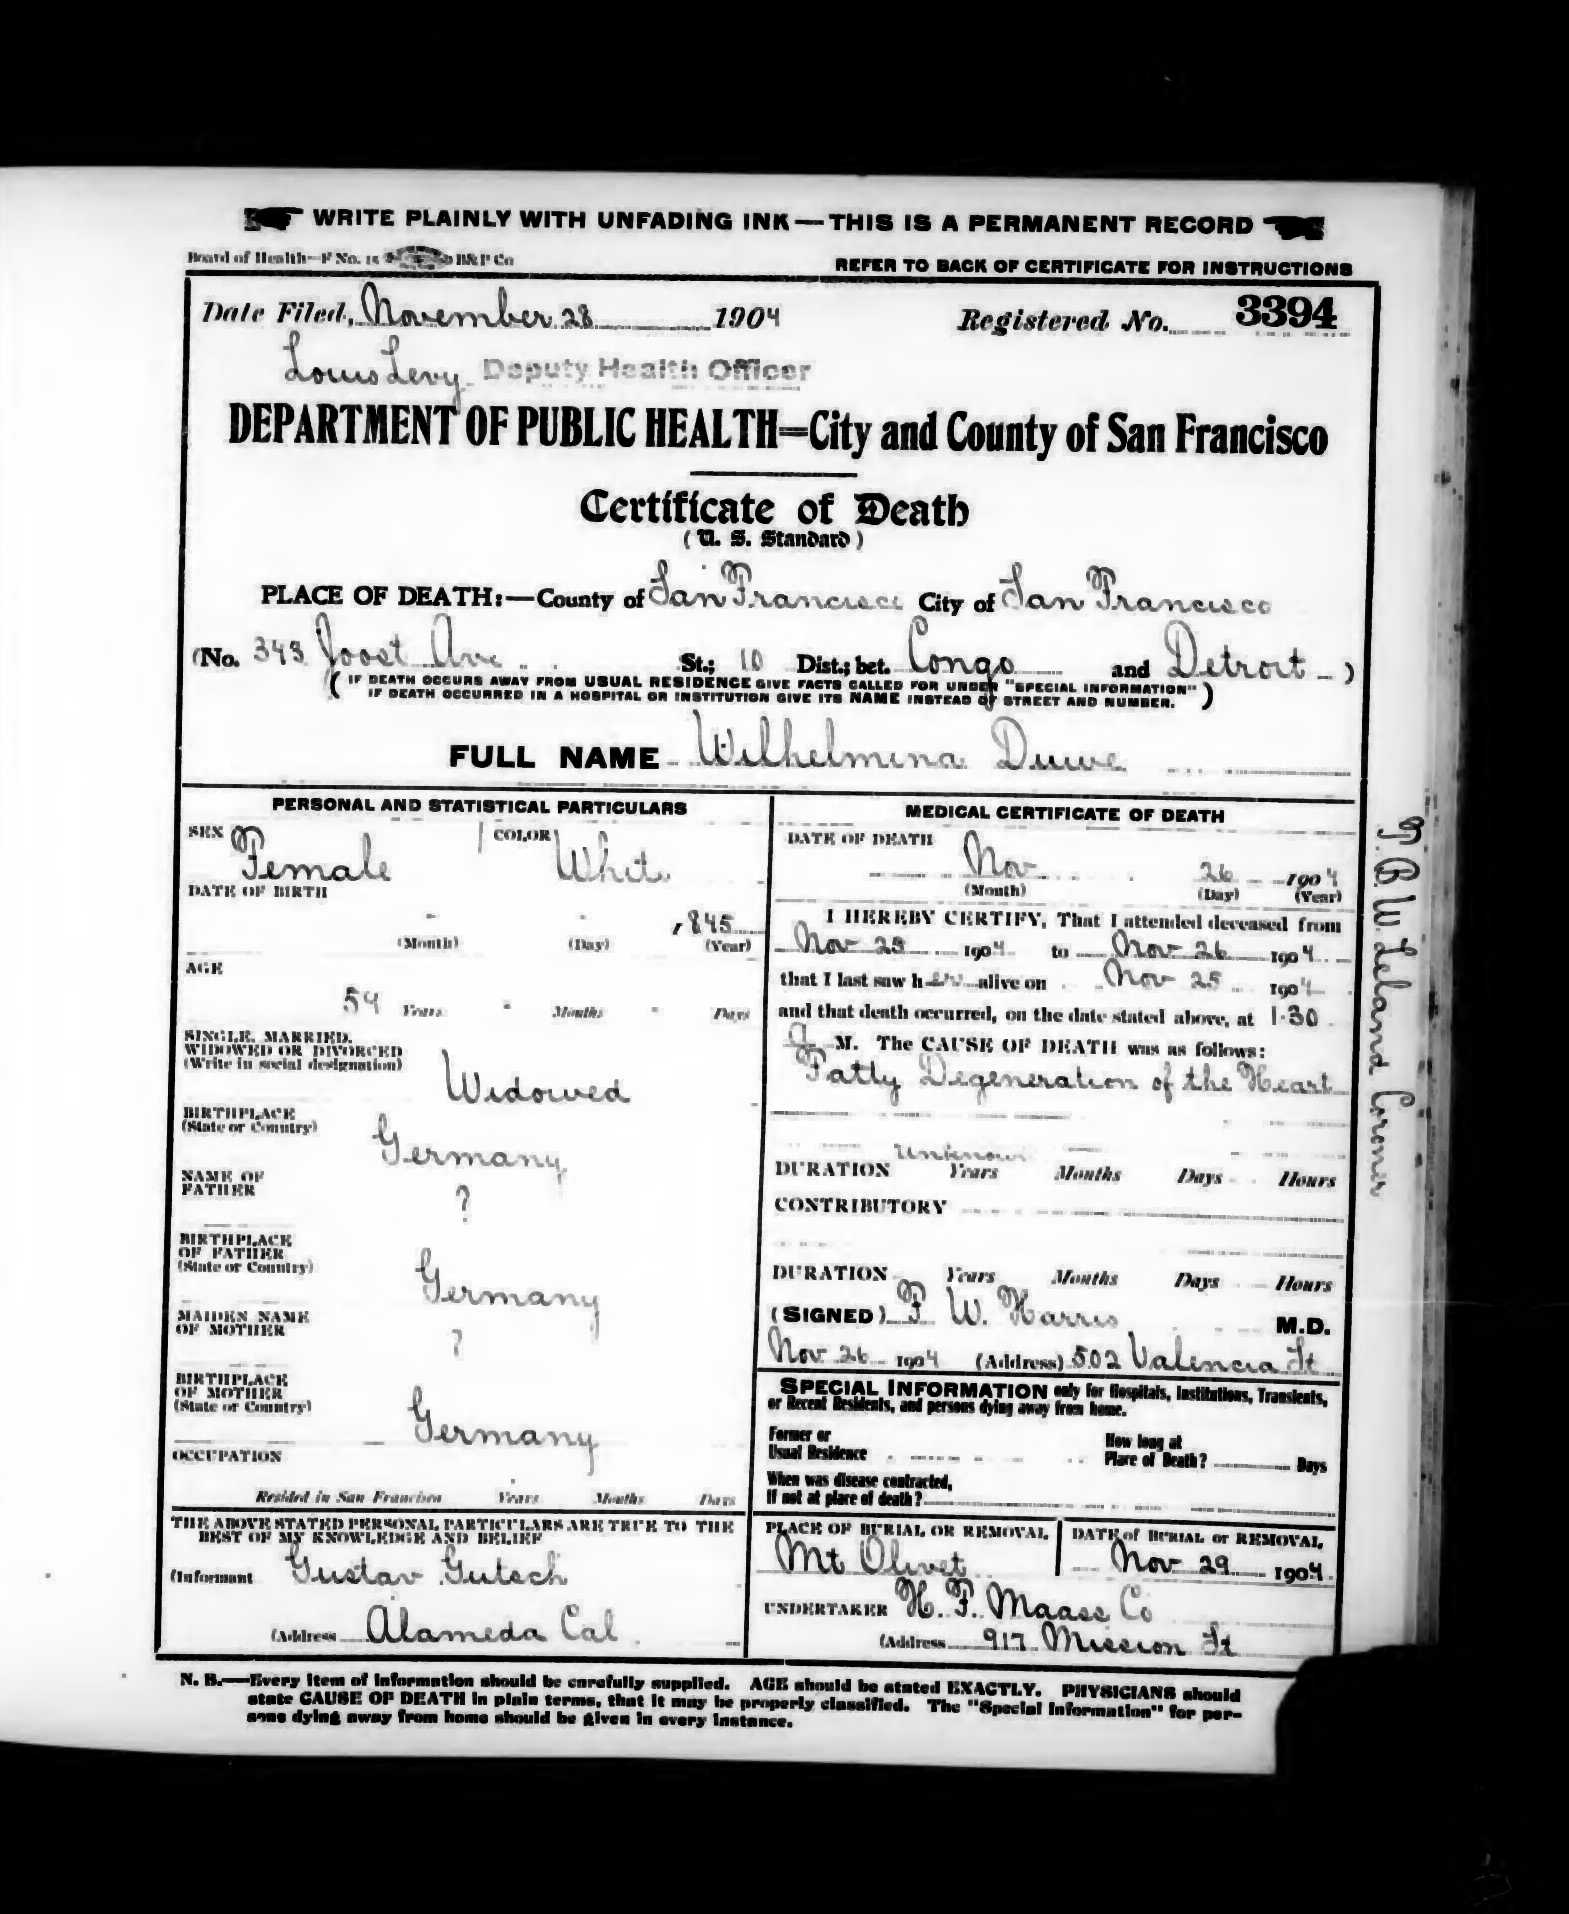 WRITE PLAINLY WITH UNFADING INK—THIS IS A PERMANENT RECORD
Board of Health—F No. 15 B&P Co
REFER TO BACK OF CERTIFICATE FOR INSTRUCTIONS
Date Filed, November 28 1904 Registered No. 3394
Louis Levy Deputy Health Officer
DEPARTMENT OF PUBLIC HEALTH=City and County of San Francisco
Certificate of Death
(U. S. Standard)
PLACE OF DEATH:—County of San Francisco City of San Francisco
(No. 343 Joost Ave St.; 10 Dist.; bet. Congo and Detroit )
( IF DEATH OCCURS AWAY FROM USUAL RESIDENCE GIVE FACTS CALLED FOR UNDER "SPECIAL INFORMATION" )
IF DEATH OCCURRED IN A HOSPITAL OR INSTITUTION GIVE ITS NAME INSTEAD OF STREET AND NUMBER.
FULL NAME Wilhelmina Duwe
PERSONAL AND STATISTICAL PARTICULARS
SEX Female COLOR White
DATE OF BIRTH
1845
(Month) (Day) (Year)
AGE
59 Years - Months - Days
SINGLE, MARRIED,
WIDOWED OR DIVORCED
(Write in social designation) Widowed
BIRTHPLACE
(State or Country) Germany
NAME OF
FATHER ?
BIRTHPLACE
OF FATHER
(State or Country) Germany
MAIDEN NAME
OF MOTHER ?
BIRTHPLACE
OF MOTHER
(State or Country) Germany
OCCUPATION
Resided in San Francisco Years Months Days
THE ABOVE STATED PERSONAL PARTICULARS ARE TRUE TO THE
BEST OF MY KNOWLEDGE AND BELIEF
(Informant Gustav Gutsch
(Address Alameda Cal
MEDICAL CERTIFICATE OF DEATH
DATE OF DEATH
Nov 26 1904
(Month) (Day) (Year)
I HEREBY CERTIFY, That I attended deceased from
Nov 25 1904 to Nov 26 1904
that I last saw her alive on Nov 25 1904
and that death occurred, on the date stated above, at 1.30
a M. The CAUSE OF DEATH was as follows:
Fatty Degeneration of the Heart
unknown
DURATION Years Months Days Hours
CONTRIBUTORY
DURATION Years Months Days Hours
(SIGNED) F. W. Harris M.D.
Nov 26 1904 (Address) 502 Valencia St
SPECIAL INFORMATION only for Hospitals, Institutions, Transients,
or Recent Residents, and persons dying away from home.
Former or
Usual Residence
How long at
Place of Death? Days
When was disease contracted,
If not at place of death?
PLACE OF BURIAL OR REMOVAL
Mt Olivet
DATE of BURIAL or REMOVAL
Nov 29 1904
UNDERTAKER H. F. Maass Co
(Address 917 Mission St
N. B.—Every item of information should be carefully supplied. AGE should be stated EXACTLY. PHYSICIANS should
state CAUSE OF DEATH in plain terms, that it may be properly classified. The "Special Information" for per-
sons dying away from home should be given in every instance.
T. B. W. Leland Coroner